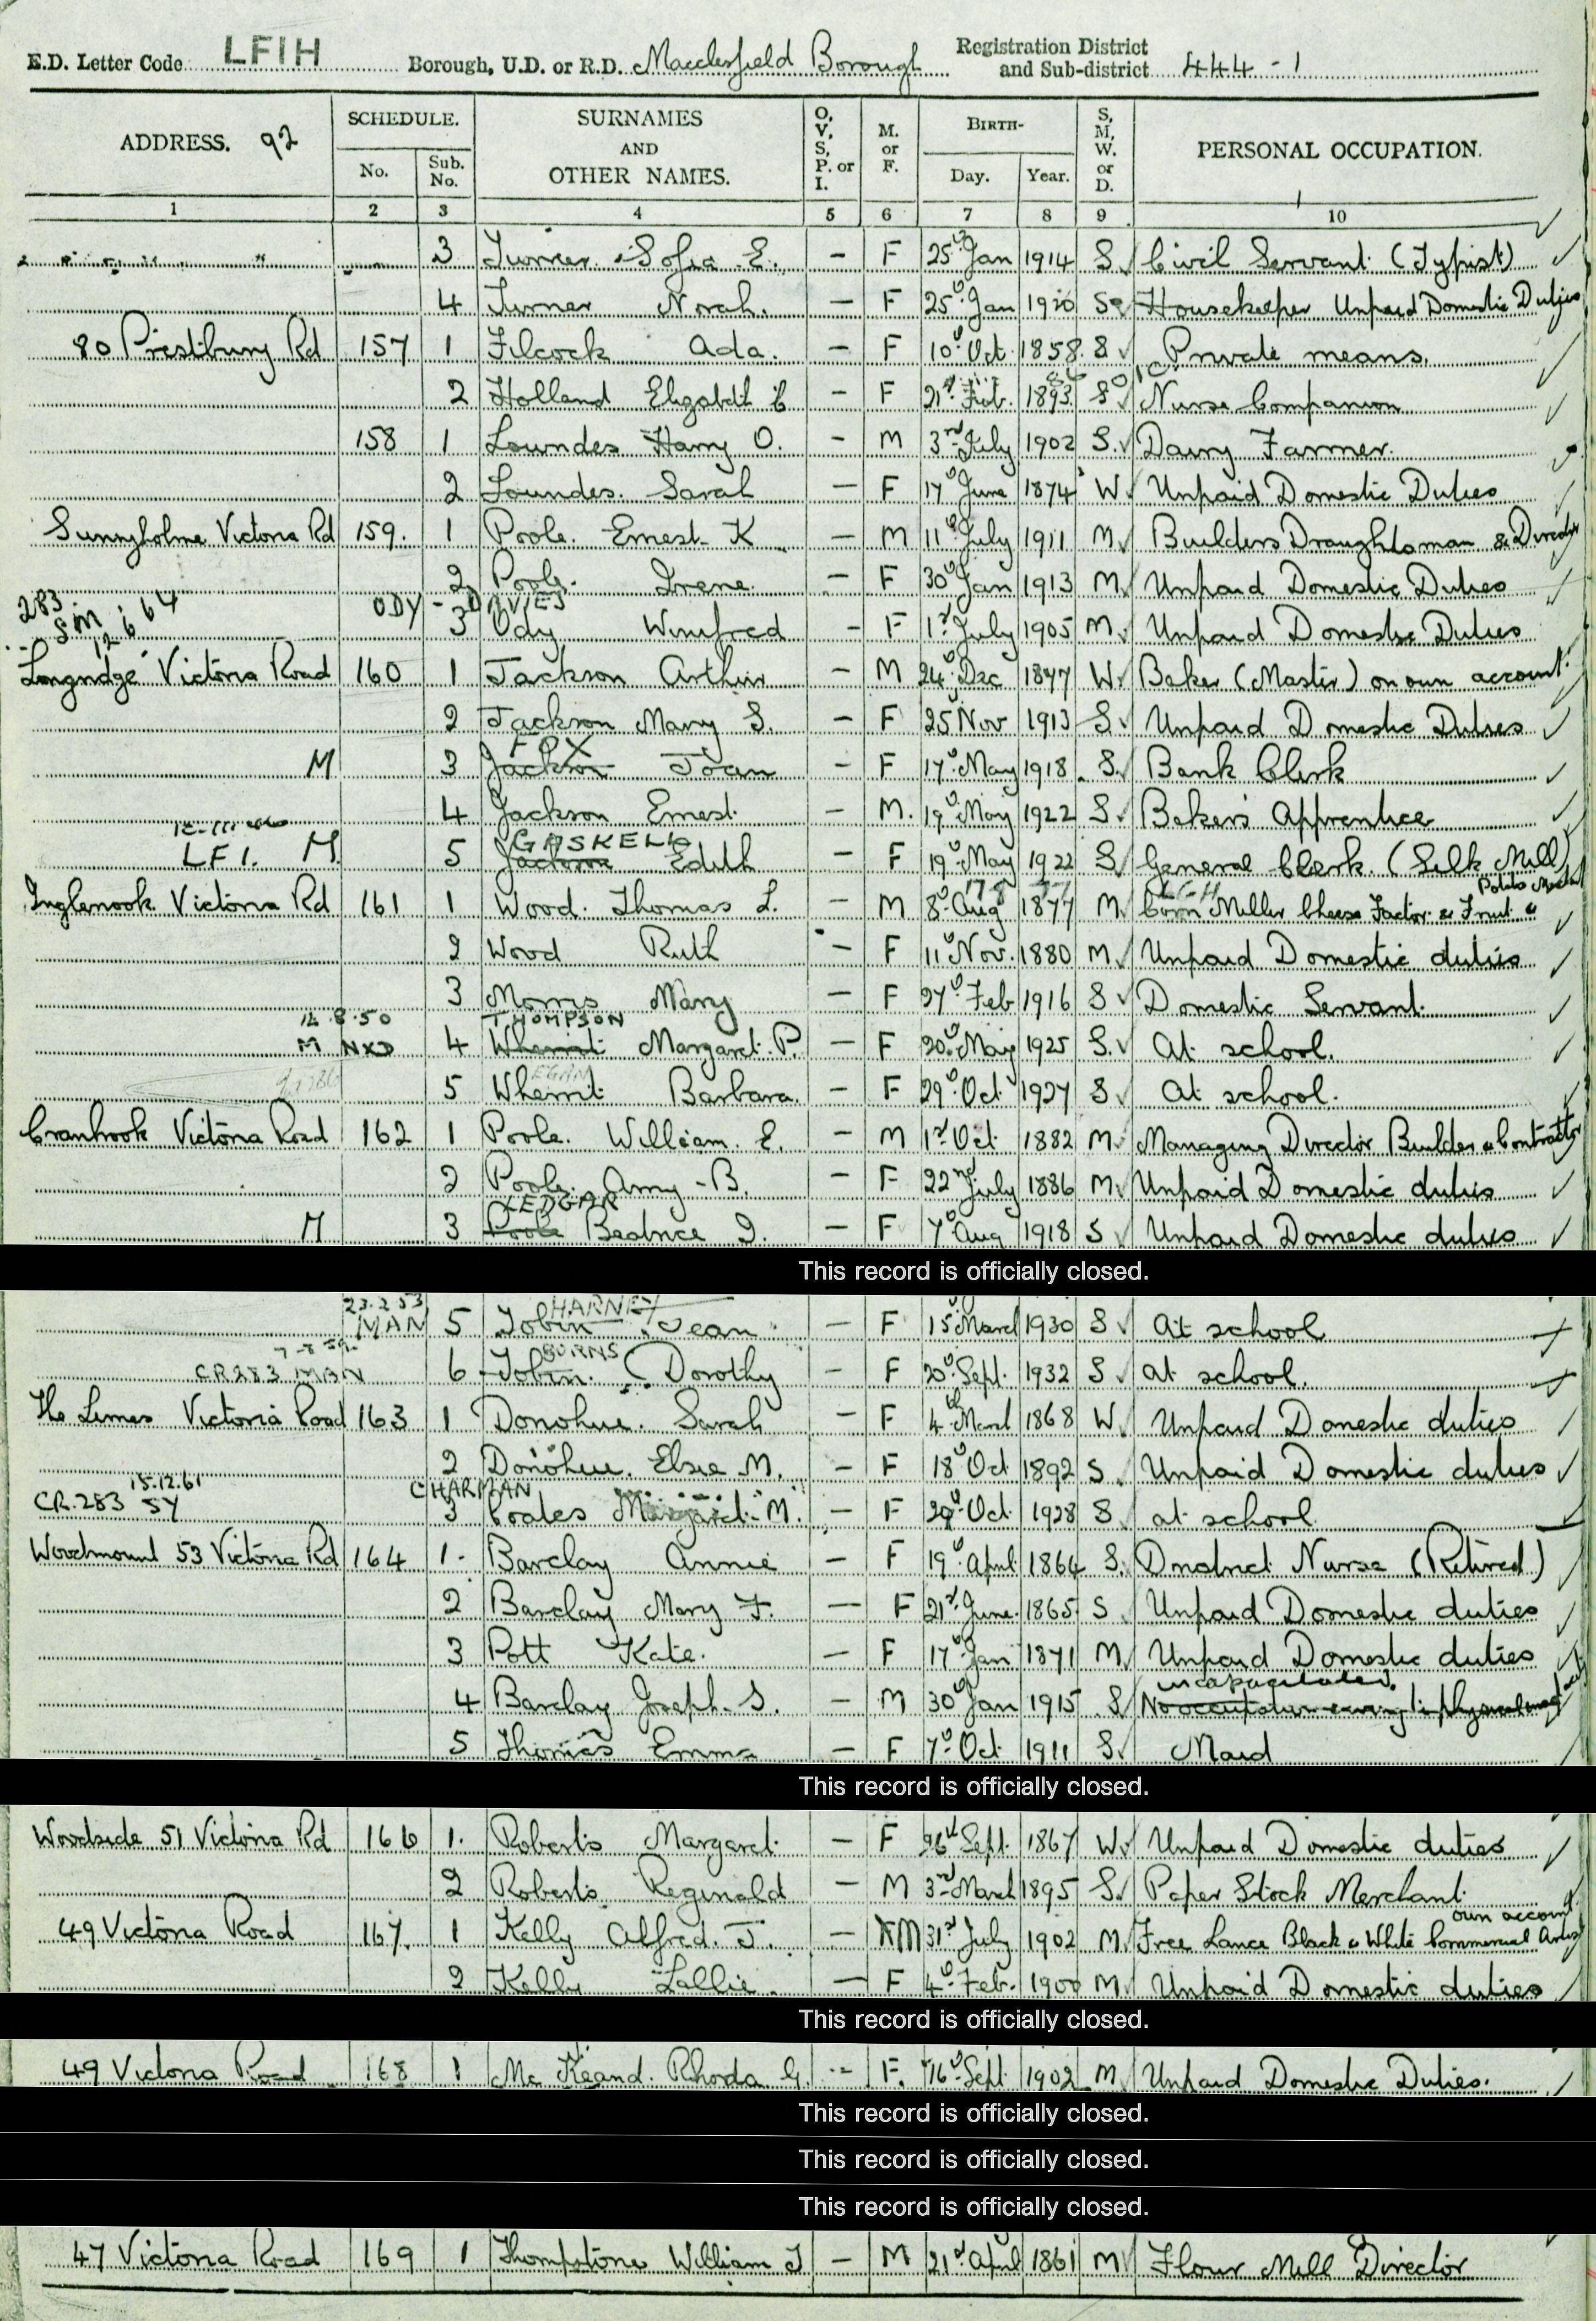 E.D. Letter Code LFIH Borough, U.D. or R.D. Macclesfield Borough Registration District and Sub-district 444-1
ADDRESS. 92 SCHEDULE. No. Sub. No. SURNAMES AND OTHER NAMES. O, V, S, P. or I. M. or F. BIRTH- Day. Year. S, M, W. or D. PERSONAL OCCUPATION.
1 2 3 4 5 6 7 8 9 10
3 Turner Sofia E. – F 25 Jan 1914 S Civil Servant (Typist)
4 Turner Norah. – F 25 Jan 1910 S Housekeeper Unpaid Domestic Duties
80 Prestbury Rd 157 1 Filcock Ada. – F 10 Oct 1858 S Private means.
2 Holland Elizabeth C – F 21st Feb. 1893 S Nurse Companion
158 1 Lowndes Harry O. – M 3rd July 1902 S. Dairy Farmer.
2 Lowndes. Sarah – F 17 June 1874 W Unpaid Domestic Duties
Sunnyholme Victoria Rd 159. 1 Poole. Ernest K – M 11 July 1911 M Builders Draughtsman & Director
2 Poole. Irene – F 30 Jan 1913 M Unpaid Domestic Duties
283 SM 12 6 64 ODY - DAVIES
3 Ody Winifred – F 1st July 1905 M Unpaid Domestic Duties
Longridge Victoria Road 160 1 Jackson Arthur – M 24 Dec 1877 W Baker (Master) on own account
2 Jackson Mary S. – F 25 Nov 1913 S Unpaid Domestic Duties
FOX
M 3 Jackson Joan – F 17 May 1918 S. Bank Clerk
4 Jackson Ernest – M. 19 May 1922 S Bakers Apprentice
GASKELL
LFI. M. 5 Jackson Edith – F 19 May 1922 S General Clerk (Silk Mill)
Inglenook Victoria Rd 161 1 Wood. Thomas L. – M 8 Aug 1877 M Corn Miller Cheese Factor & Fruit & Potato Merchant
2 Wood Ruth – F 11 Nov. 1880 M Unpaid Domestic duties
3 Morris Mary – F 27 Feb 1916 S Domestic Servant.
14.8.50 THOMPSON
M NXD 4 Wherrit Margaret P. – F 20 May 1925 S. At school.
EGAN
5 Wherrit Barbara. – F 29 Oct 1927 S At school.
Cranbrook Victoria Road 162 1 Poole. William. E. – M 1st Oct 1882 M Managing Director Builder & Contractor
2 Poole Amy B. – F 22nd July 1886 M Unpaid Domestic duties
LEDGAR
M 3 Poole Beatrice I. – F 7 Aug 1918 S Unpaid Domestic duties
This record is officially closed.
23.2.53 HARNEY
MAN 5 Tobin Jean – F 15 March 1930 S At school
BURNS
CR283 MAN 6 Tobin. Dorothy – F 20 Sept. 1932 S at school.
The Limes Victoria Road 163 1 Donohue. Sarah – F 4th March 1868 W Unpaid Domestic duties
2 Donohue. Elsie M. – F 18 Oct 1892 S. Unpaid Domestic duties
15.12.61 CHARMAN
CR.283 SY 3 Coates Margaret M. – F 29 Oct 1928 S at school
Woodmount 53 Victoria Rd 164 1. Barclay Annie – F 19 April 1864 S. District Nurse (Retired)
2 Barclay Mary F. – F 21st June 1865 S Unpaid Domestic duties
3 Pott Kate. – F 17 Jan 1871 M Unpaid Domestic duties
incapacitated.
4 Barclay Joseph. S. – M 30 Jan 1915 S No occupation owing to physical
5 Thomas Emma – F 7 Oct 1911 S Maid
This record is officially closed.
Woodside 51 Victoria Rd 166 1. Roberts Margaret – F 26th Sept. 1867 W Unpaid Domestic duties
2 Roberts Reginald – M 3rd March 1895 S Paper Stock Merchant
own account
49 Victoria Road 167. 1 Kelly Alfred. J. – M 31st July 1902 M Free Lance Black & White Commercial Artist
2 Kelly Lallie. – F 4 Feb. 1900 M Unpaid Domestic duties
This record is officially closed.
49 Victoria Road 168 1 Mc Keand. Rhoda G. – F. 16 Sept 1902 M Unpaid Domestic Duties.
This record is officially closed.
This record is officially closed.
This record is officially closed.
47 Victoria Road 169 1 Thompstone William J – M 21st April 1861 M Flour Mill Director